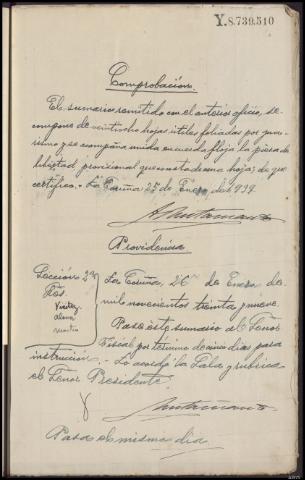 Y.8.739.510
Comprobación.
El sumario remitido con el anterior oficio, se
compone de veintiocho hojas útiles foliadas por
y se acompaña unida en cuerda floja la pieza de
libertad provisional que consta de una hoja; de que
certifico.- La Coruña 25 de Enero de 1939.
Santamaría
Providencia
Sección 2ª
La Coruña, 26 de Enero de
mil novecientos treinta y nueve.
Pase este sumario al Señor
Fiscal por término de cinco días para
instrucción.- Lo acordó la Sala y rubrica
el Señor Presidente.
Santamaría
Pasa el mismo día